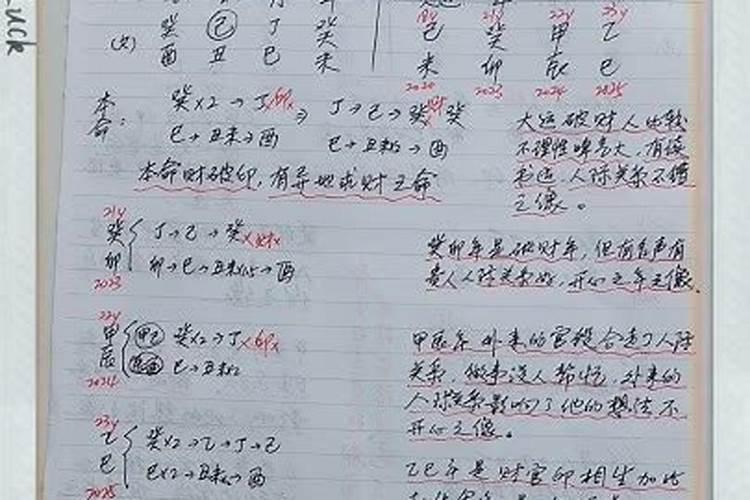 Luck
癸 己 丁 癸
(女)
酉 丑 巳 未
18y 21y 22y 23y
己 癸 甲 乙
未 卯 辰 巳
2020 2023 2024 2025
本命:
癸x2→丁x印x ⇒ 丁→己→癸x财x 癸
巳→丑未→酉 巳→丑未x2→酉
本命财破印,有异地求财之命
大运破财人比较
不理性啤气大,有
人际关系不错
之像。
21y
癸 丁→己→癸x财x
卯 卯→巳→丑未x2→酉
2023
癸卯年是破财年,但有名声有
贵人人际关系好,开心之年之像.
22y
甲 甲己 癸x2→丁x印x
辰 辰酉 巳→丑未x2
2024
甲辰年外来的官杀合走了人际
关系,做事没人帮忙,外来的
人际关系影响了他的想法不
开心之像。
23y
乙 癸x2→乙→丁→己
巳 巳x2→丑未x2→酉
2025
乙巳年是财官印相生加比